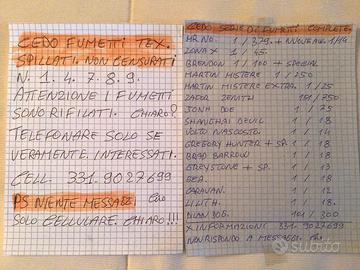 CEDO FUMETTI TEX.
SPILLATI. NON CENSURATI
N. 1. 4. 7. 8. 9.
ATTENZIONE I FUMETTI
SONO RIFILATI. CHIARO?
TELEFONARE SOLO SE
VERAMENTE. INTERESSATI.
CELL. 331.9027699
PS NIENTE MESSAGGI. Ciao
SOLO CELLULARE. CHIARO!!!
CEDO SERIE DI FUMETTI COMPLETE.
MR. NO. 1 / 379. + NUOVE AV. 1/14
ZONA X 1 / 45.
BRENDON 1 / 100 + SPECIAL
MARTIN MISTERE 1 / 250
MARTIN MISTERE EXTRA. 1 / 25
ZAGOR ZENITH 151/750
JONATHAN 1 / 75
SHANGHAI DEVIL 1 / 18
VOLTO NASCOSTO. 1 / 14
GREGORY HUNTER + SP. 1 / 18
BRAD BARRON 1 / 18
GREYSTORM + SP. 1 / 13
GEA. 1 / 18
CARAVAN. 1 / 12
LILITH. 1 / 18.
DIAN DOG. 101 / 300
X INFORMAZIONI 331.9027699
NON RISPONDO A MESSAGGI. Ciao.
subito